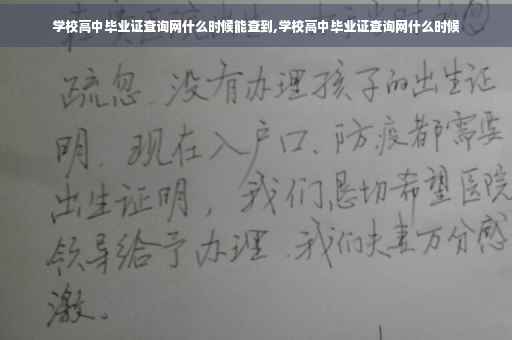 学校高中毕业证查询网什么时候能查到,学校高中毕业证查询网什么时候
疏忽.没有办理孩子的出生证
明.现在入户口、防疫都需要
出生证明，我们恳切希望医院
领导给予办理.我们夫妻万分感
激。